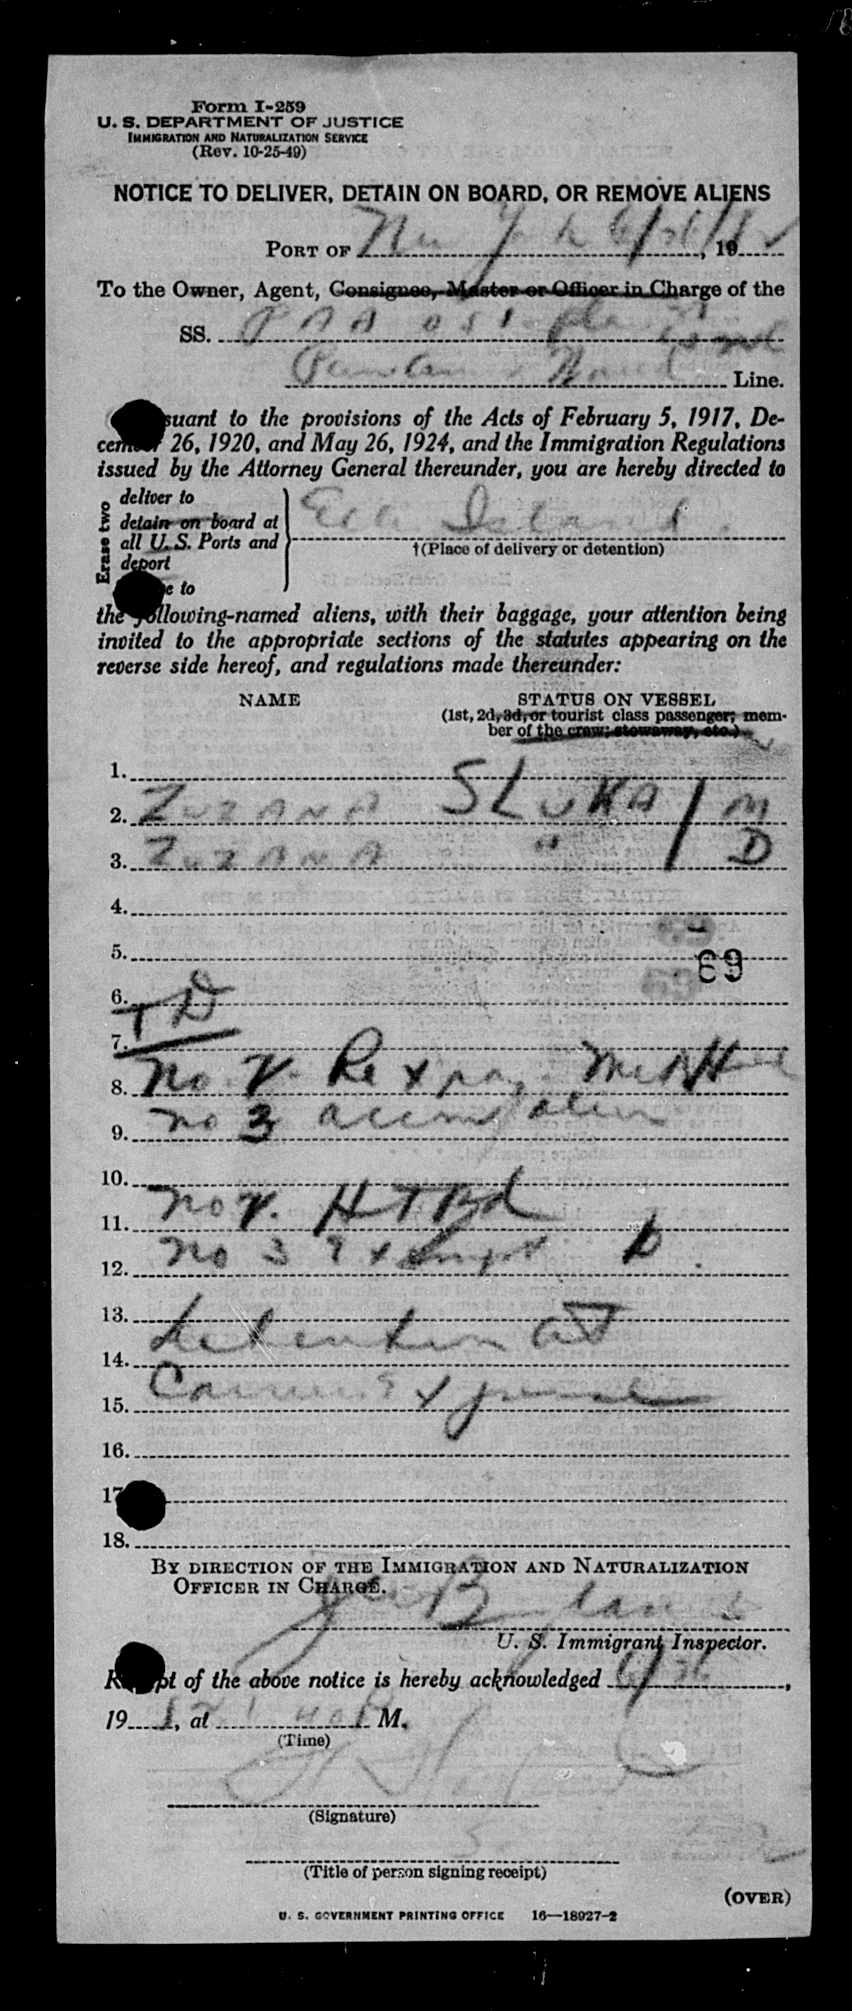 Form I-259
U. S. DEPARTMENT OF JUSTICE
IMMIGRATION AND NATURALIZATION SERVICE
(Rev. 10-25-49)
NOTICE TO DELIVER, DETAIN ON BOARD, OR REMOVE ALIENS
PORT OF New York 6/26/, 19
To the Owner, Agent, Consignee, Master or Officer in Charge of the
SS. PAA
Line.
suant to the provisions of the Acts of February 5, 1917, De-
cember 26, 1920, and May 26, 1924, and the Immigration Regulations
issued by the Attorney General thereunder, you are hereby directed to
Erase two
deliver to
detain on board at
all U. S. Ports and
deport
e to
Island
†(Place of delivery or detention)
the following-named aliens, with their baggage, your attention being
invited to the appropriate sections of the statutes appearing on the
reverse side hereof, and regulations made thereunder:
NAME STATUS ON VESSEL
(1st, 2d, 3d, or tourist class passenger; mem-
ber of the crew; stowaway, etc.)
1.
2. ZUZANA SLUKA M
3. ZUZANA " D
4.
5. 69
6. TD
7.
8. No
9. no 3 accomp alien
10.
11. No
12. no 3
13.
14. detention at
15. expense
16.
17
18.
BY DIRECTION OF THE IMMIGRATION AND NATURALIZATION
OFFICER IN CHARGE.
U. S. Immigrant Inspector.
Receipt of the above notice is hereby acknowledged 6/26,
19, at M.
(Time)
(Signature)
(Title of person signing receipt)
(OVER)
U. S. GOVERNMENT PRINTING OFFICE 16—18927-2